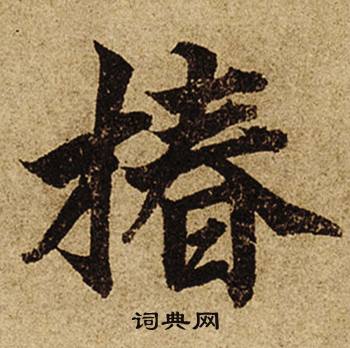 椿
词典网